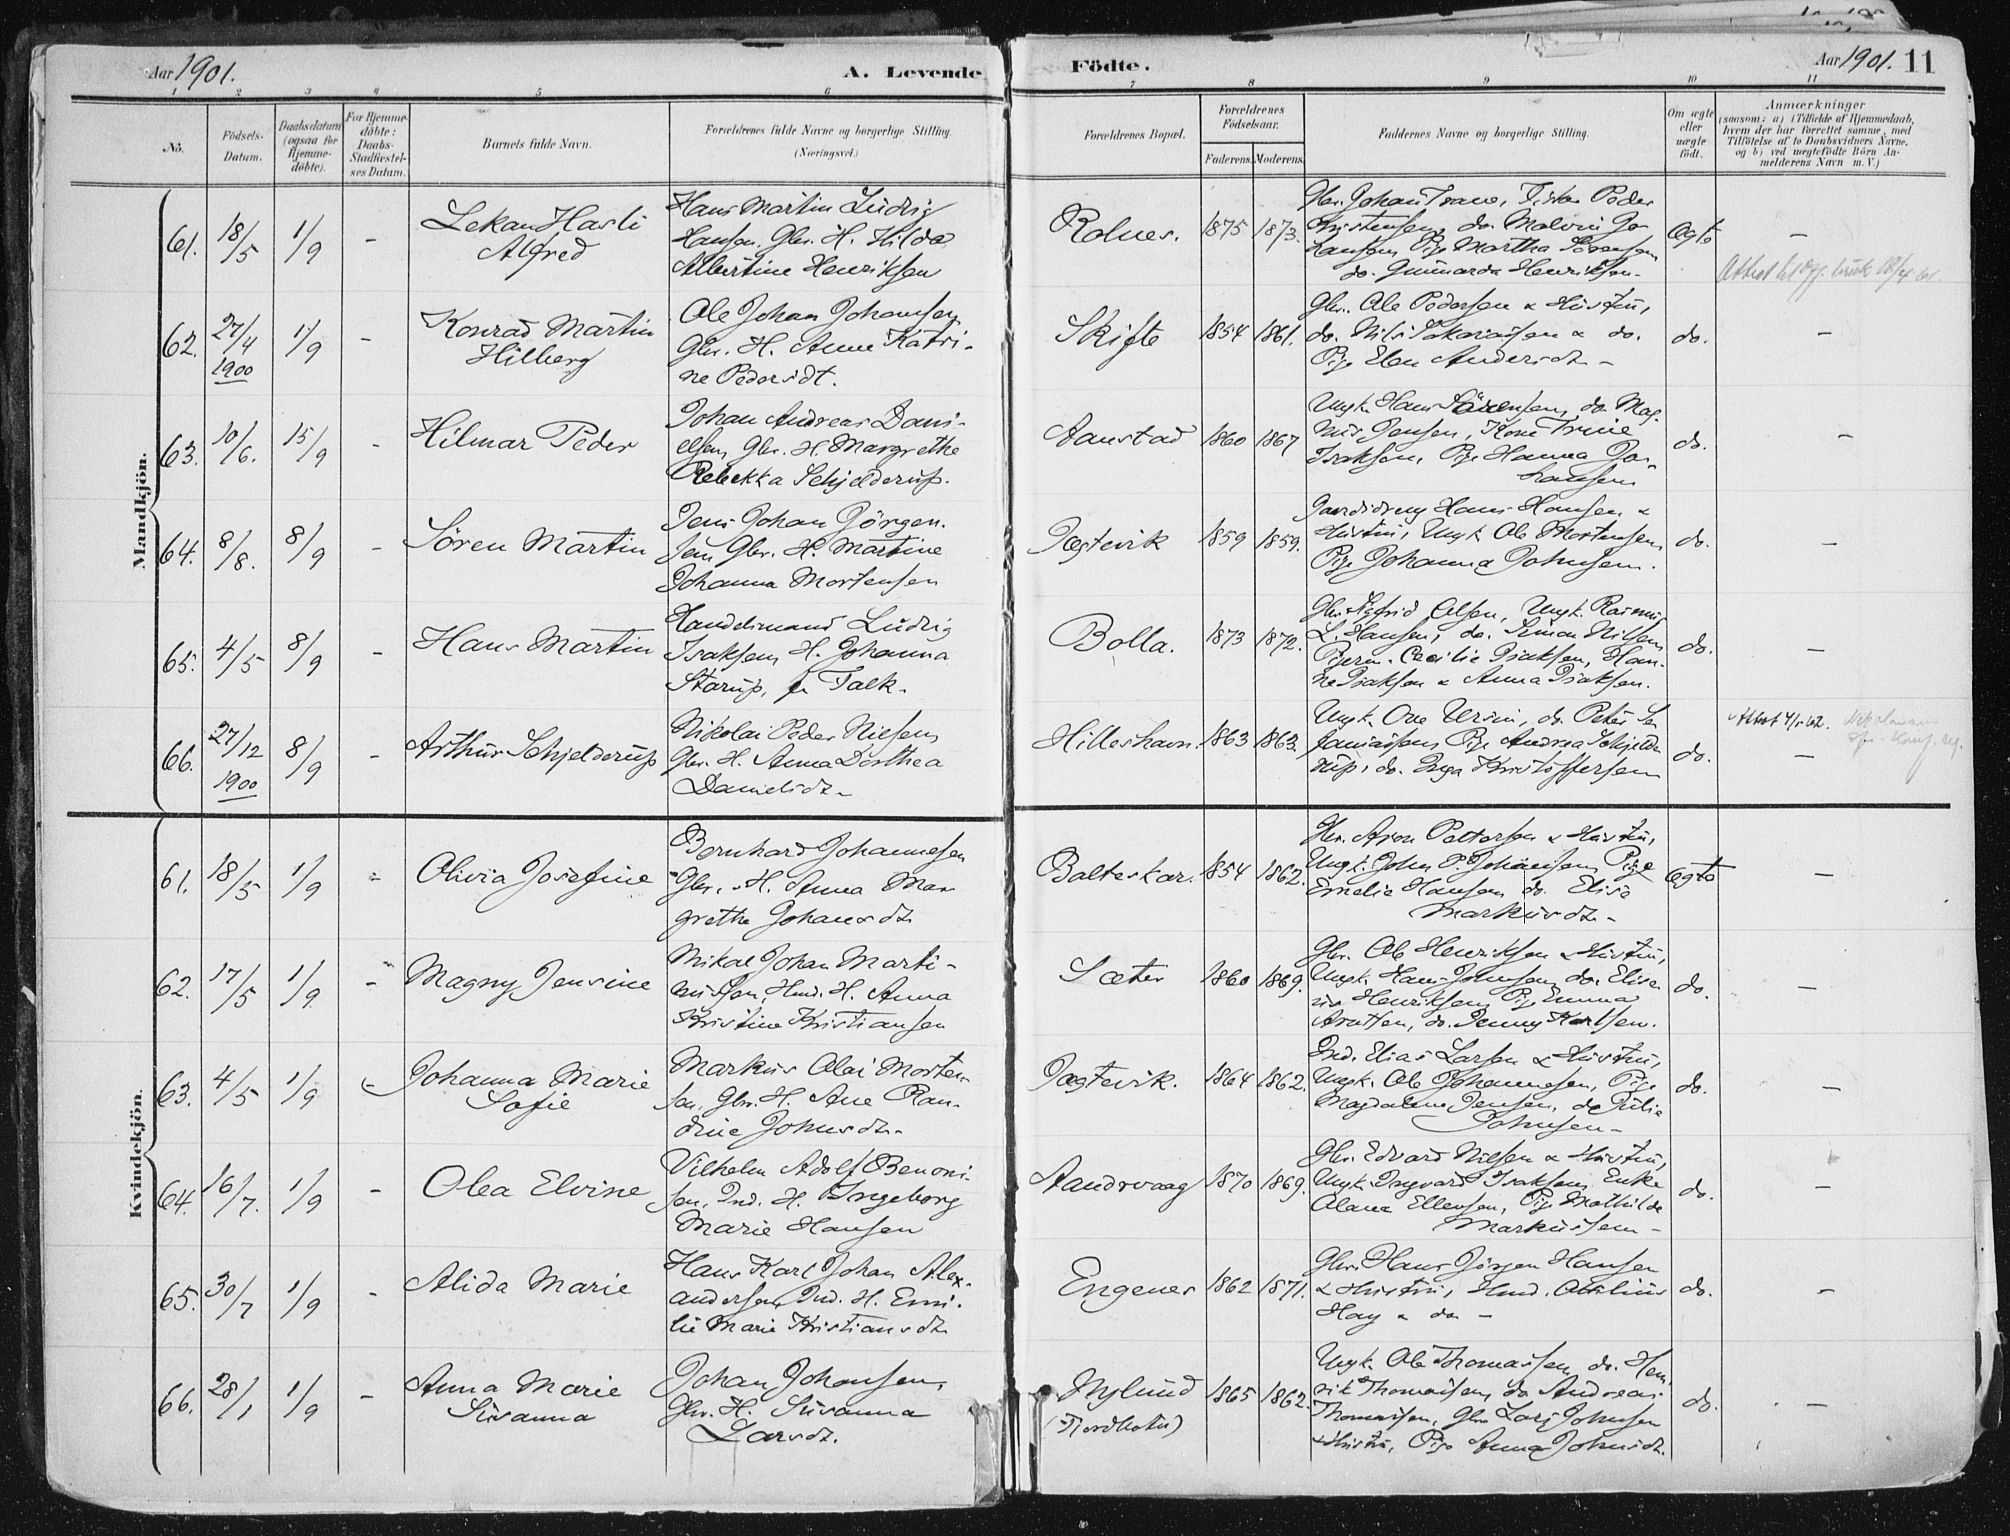 Aar 1901.
A. Levende
Födte.
Aar 1901. 11
1 2 3 4 5 6 7 8 9 10 11
No.
Födsels-
Datum.
Daabsdatum
(ogsaa for
Hjemme-
döbte).
For Hjemme-
döbte:
Daabs-
Stadfæstel-
ses Datum.
Barnets fulde Navn.
Forældrenes fulde Navne og borgerlige Stilling.
(Næringsvei.)
Forældrenes Bopæl.
Forældrenes
Födselsaar.
Faderens. Moderens.
Faddernes Navne og borgerlige Stilling.
Om ægte
eller
uægte
födt.
Anmærkninger
(saasom: a) i Tilfælde af Hjemmedaab,
hvem der har forrettet samme, med
Tilföielse af to Daabsvidners Navne,
og b) ved uægtefödte Börn An-
melderens Navn m. V.)
Mandkjön.
61.
18/5
1/9
-
Alfred
Hans Martin Ludvig
Hansen, Gbr. H. Hilda
Albertine Henriksen
Rolnes.
1875
1873.
Gbr. Johan Fisker Peder
Kristensen, do. Malvin Jo-
hansen, Pige Martha
do. Gunnarda Henriksen.
Ægte
-
62.
27/4
1900
1/9
-
Konrad Martin
Hilberg
Ole Johan Johansen
Gbr. H. Anne Katri-
ne Pedersdt.
Skifte
1854
1861.
Gbr. Ole Pedersen & Hustru,
do. Nils & do.
Pige Elen Andersdt. -
do.
-
63.
10/6.
15/9
-
Hilmar Peder
Johan Andreas Dani-
elsen, Gbr. H. Margrethe
Rebekka Schjelderup.
Aanstad
1860
1867
Ungk. Hans Sörensen, do. Mag-
nus Jensen, Kone Trine
Isaksen, Pige Hanna Jo-
hansen
do.
-
64.
8/8.
8/9
-
Søren Martin
Jens Johan Jörgen-
sen Gbr. H. Martine
Johanna Mortensen
Jægtevik
1859
1859.
Hans Hansen &
Hustru, Ungk. Ole Mortensen,
Pige Johanna Johnsen.
do.
-
65.
4/5
8/9
-
Hans Martin
Handelsmand Ludvig
Isaksen, H. Johanna
Starup, f. Falk.
Bolla.
1873
1872.
Gbr. Sigfrid Olsen, Ungk. Rasmus
L. Hansen, do. Simon Nilsen,
Pigern. Cecilie Isaksen, Han-
na Isaksen & Anna Isaksen.
do.
-
66.
27/12
1900
8/9
-
Arthur Schjelderup
Nikolai Peder Nielsen
Gbr. H. Anna Dorthea
Danielsdt. -
Hilleshavn.
1863
1863.
Ungk. Ove do. Peter
Pige Andrea Schjelde-
rup, do. Inga Kristoffersen
do.
-
Kvindekjön.
61.
18/5
1/9
-
Olivia Josefine
Bernhard Johannesen
Gbr. H. Anna Mar-
grethe Johansdt.
Balteskar.
1854
1862.
Gbr. Aron Pettersen & Hustru,
Ungk. John P. Johansen, Pige
Emelie Hansen, do. Elisa
Markusdt. -
Ægte
-
62.
17/5
1/9
-
Magny Jensine
Mikal Johan Marti-
nussen, Hmd. H. Anna
Kristine Kristiansen
Sæter
1860
1869.
Gbr. Ole Henriksen & Hustru,
Ungk. Hans Johnsen, do. Elise-
us Henriksen, Pige Emma
do. Jenny Karlsen.
do.
-
63.
4/5
1/9
-
Johanna Marie
Sofie
Markus Olai Morten-
sen, Gbr. H. Ane Ran-
dine Johnsdt. -
Jægtevik.
1864
1862.
Ind. Elias Larsen & Hustru,
Ungk. Ole Johannesen, Pige
Magdalena Jensen, do. Julie
Johnsen -
do.
-
64.
16/7.
1/9
-
Olea Elvine
Vilhelm Adolf Benoni-
sen, Ind. H. Ingeborg
Marie Hansen
Aandervaag
1870
1869.
Gbr. Edvard Nilsen & Hustru,
Ungk. Ingvard Isaksen, Enke
Alana Ellevsen, Pige Mathilde
Markussen -
do.
-
65.
30/7
1/9
-
Alida Marie
Hans Karl Johan Alex-
andersen, Ind. H. Emi-
lie Marie Kristiansdt.
Engenes
1862
1871.
Gbr. Hans Jørgen Hansen
& Hustru, Hmd.
Hay & do -
do.
-
66.
28/1
1/9
-
Anna Marie
Susanna
Johan Johansen,
Gbr. H. Susanna
Larsdt.
Nylund
(Fjordbotn)
1865
1862.
Ungk. Ole Thomassen, do. Hen-
rik Thomassen, do Andreas
Thomassen, Gbr. Lars Johnsen
& Hustru, Pige Anna Johnsdt.
do.
-